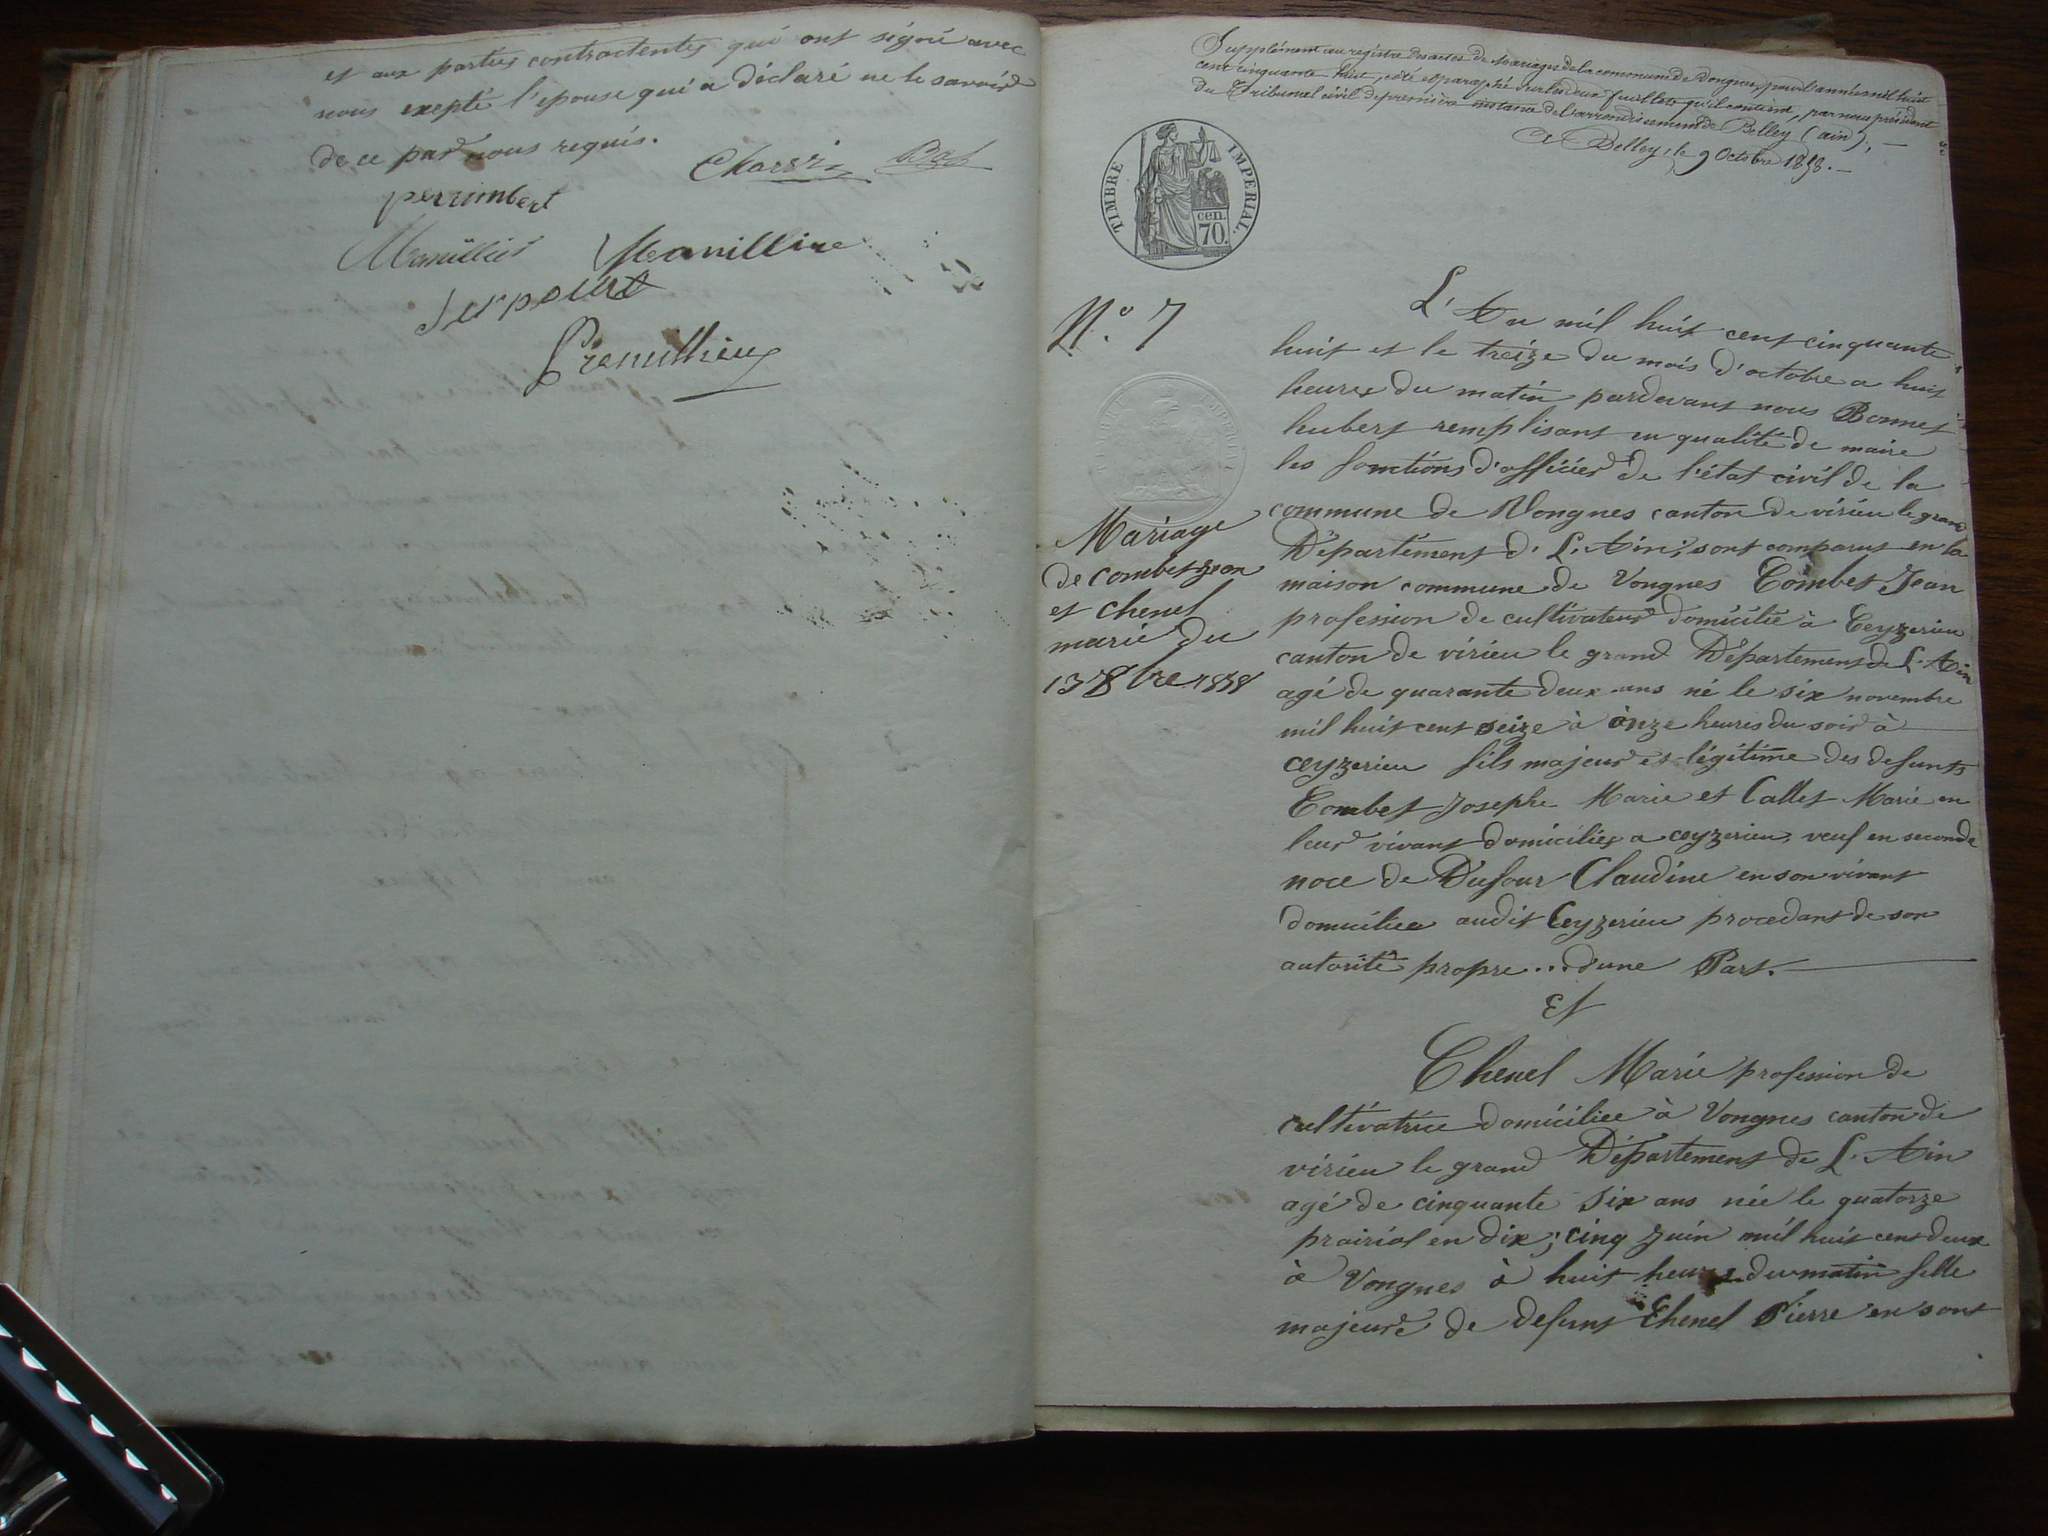 et aux parties contractentes qui ont signé avec
nous exepté l'epouse qui a déclaré ne le savoir
de ce par nous requis.
perrimbert
Manillier Manillier
Serpollet
Premillieu
Supplément au registre des actes de Mariages de la commune de Vongnes, pour l'année mil huit
cent cinquante huit, coté et paraphé sur les deux feuillets qu'il contient, par nous président
du Tribunal civil de première instance de l'arrondissement de Belley (ain), —
A Belley, le 9 Octobre 1858. —
TIMBRE IMPERIAL.
cen.
70.
N.° 7
Mariage
de combet jean
et chenel
marie du
13 8bre 1858
L'An mil huit cent cinquante
huit et le treize du mois d'octobre a huit
heures du matin pardevant nous Bonnet
hubert remplisant en qualité de maire
les fonctions d'officier de l'état civil de la
commune de Vongnes canton de virieu le grand
Département de L'Ain, sont comparus en la
maison commune de Vongnes Combet Jean
profession de cultivateur domicilié à Ceyzerieu
canton de virieu le grand Département de L'Ain
agé de quarante deux ans né le six novembre
mil huit cent seize à onze heures du soir à
ceyzerieu fils majeur et légitime des defunts
Combet Josephe Marie et Callet Marie en
leur vivant domiciliés a ceyzerieu, veuf en seconde
noce de Dufour Claudine en son vivant
domiciliee audit Ceyzerieu procedant de son
autorité propre ... d'une Part. —
Et
Chenel Marie profession de
cultivatrice domiciliee à Vongnes canton de
virieu le grand Département de L'Ain
agé de cinquante six ans née le quatorze
prairial en dix; cinq juin mil huit cent deux
à Vongnes à huit heures du matin fille
majeure de defunt Chenel Pierre en sont